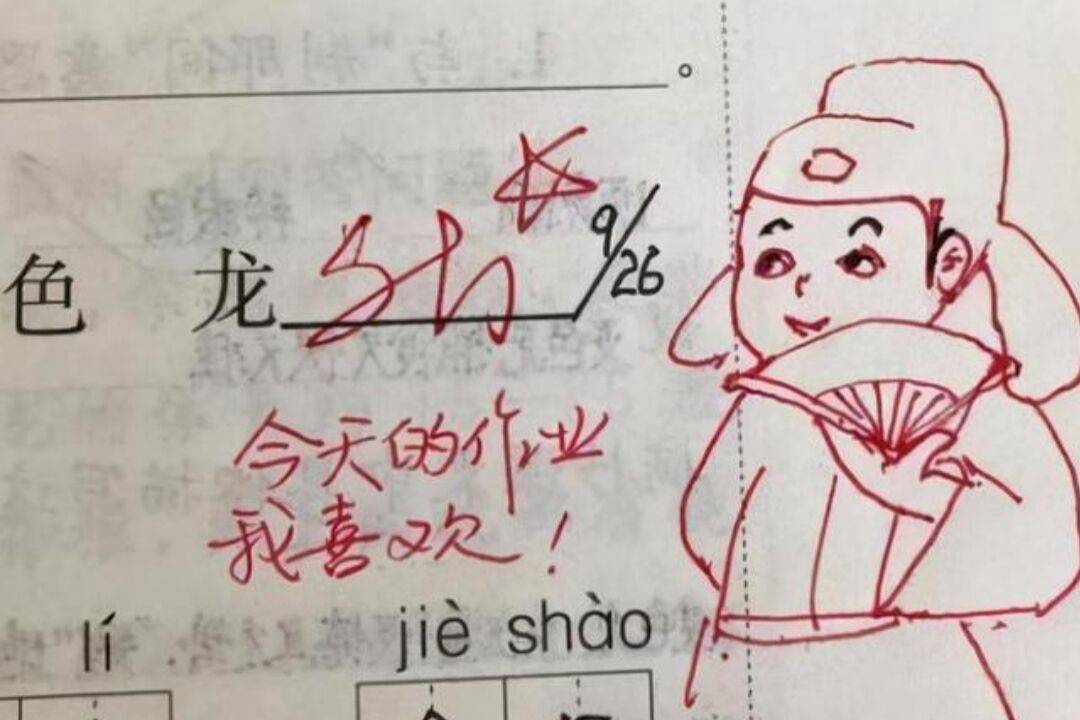 。
色 龙
9/26
今天的作业
我喜欢！
lí jiè shào